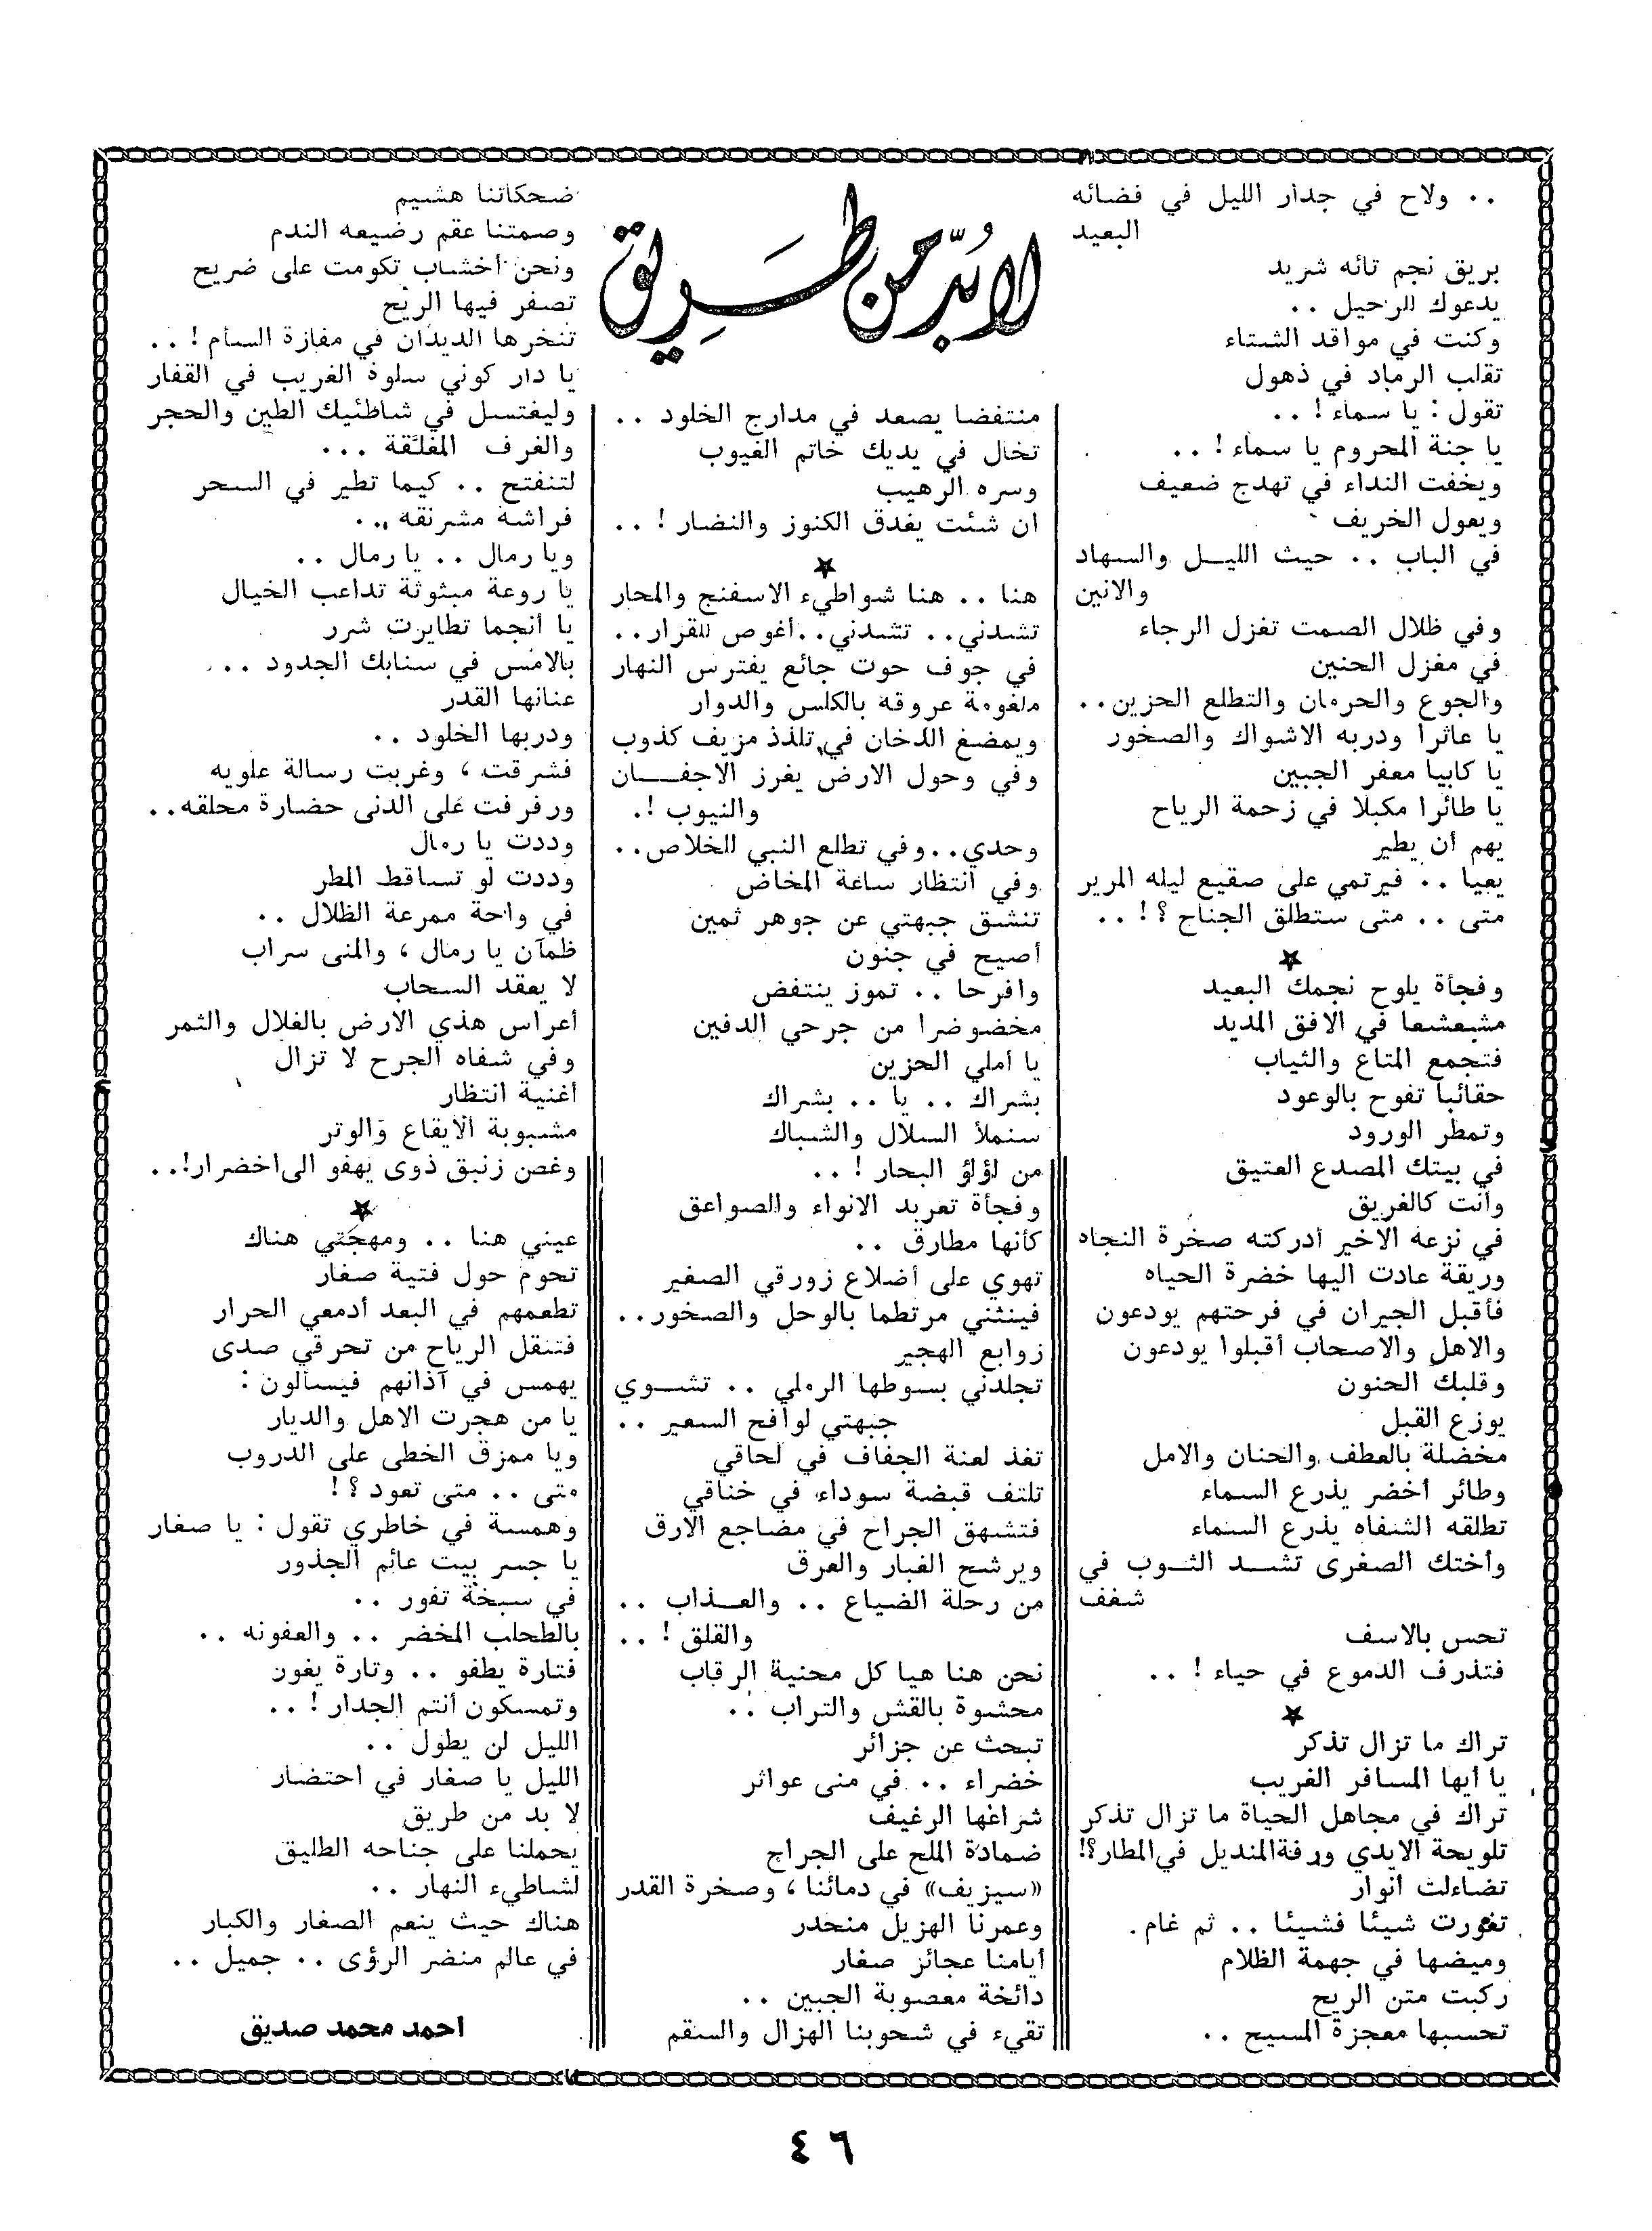 لابُدّ من طريق
.. ولاح في جدار الليل في فضائه
البعيد
بريق نجم تائه شريد
يدعوك للرحيل ..
وكنت في مواقد الشتاء
تقلب الرماد في ذهول
تقول : يا سماء ! ..
يا جنة المحروم يا سماء ! ..
ويخفت النداء في تهدج ضعيف
ويعول الخريف
في الباب .. حيث الليل والسهاد
والانين
وفي ظلال الصمت تغزل الرجاء
في مغزل الحنين
والجوع والحرمان والتطلع الحزين ..
يا عاثرا ودربه الاشواك والصخور
يا كابيا معفر الجبين
يا طائرا مكبلا في زحمة الرياح
يهم أن يطير
يعيا .. فيرتمي على صقيع ليله المرير
متى .. متى ستطلق الجناح ؟ ! ..
★
وفجأة يلوح نجمك البعيد
مشعشعا في الافق المديد
فتجمع المتاع والثياب
حقائبا تفوح بالوعود
وتمطر الورود
في بيتك المصدع العتيق
وأنت كالغريق
في نزعه الاخير أدركته صخرة النجاه
وريقة عادت اليها خضرة الحياه
فأقبل الجيران في فرحتهم يودعون
والاهل والاصحاب أقبلوا يودعون
وقلبك الحنون
يوزع القبل
مخضلة بالعطف والحنان والامل
وطائر أخضر يذرع السماء
تطلقه الشفاه يذرع السماء
وأختك الصغرى تشد الثوب في
شغف
تحس بالاسف
فتذرف الدموع في حياء ! ..
★
تراك ما تزال تذكر
يا أيها المسافر الغريب
تراك في مجاهل الحياة ما تزال تذكر
تلويحة الايدي ورفة المنديل في المطار ؟!
تضاءلت أنوار
تغورت شيئا فشيئا .. ثم غام .
وميضها في جهمة الظلام
ركبت متن الريح
تحسبها معجزة المسيح ..
منتفضا يصعد في مدارج الخلود ..
تخال في يديك خاتم الغيوب
وسره الرهيب
ان شئت يغدق الكنوز والنضار ! ..
★
هنا .. هنا شواطيء الاسفنج والمحار
تشدني .. تشدني .. أغوص للقرار ..
في جوف حوت جائع يفترس النهار
ملغومة عروقه بالكلس والدوار
ويمضغ الدخان في تلذذ مزيف كذوب
وفي وحول الارض يغرز الاجفان
والنيوب !.
وحدي .. وفي تطلع النبي للخلاص ..
وفي انتظار ساعة المخاض
تنشق جبهتي عن جوهر ثمين
أصيح في جنون
وافرحا .. تموز ينتفض
مخضوضرا من جرحي الدفين
يا أملي الحزين
بشراك .. يا .. بشراك
سنملأ السلال والشباك
من لؤلؤ البحار ! ..
وفجأة تعربد الانواء والصواعق
كأنها مطارق ..
تهوي على أضلاع زورقي الصغير
فينثني مرتطما بالوحل والصخور ..
زوابع الهجير
تجلدني بسوطها الرملي .. تشوي
جبهتي لوافح السعير ..
تغذ لعنة الجفاف في لحاقي
تلتف قبضة سوداء في خناقي
فتشهق الجراح في مضاجع الارق
ويرشح الغبار والعرق
من رحلة الضياع .. والعذاب ..
والقلق ! ..
نحن هنا هيا كل محنية الرقاب
محشوة بالقش والتراب ..
تبحث عن جزائر
خضراء .. في منى عواثر
شراعها الرغيف
ضمادة الملح على الجراح
«سيزيف» في دمائنا ، وصخرة القدر
وعمرنا الهزيل منحدر
أيامنا عجائز صغار
دائخة معصوبة الجبين ..
تقيء في شحوبنا الهزال والسقم
ضحكاتنا هشيم
وصمتنا عقم رضيعه الندم
ونحن أخشاب تكومت على ضريح
تصفر فيها الريح
تنخرها الديدان في مفازة السأم ! ..
يا دار كوني سلوة الغريب في القفار
وليغتسل في شاطئيك الطين والحجر
والغرف المغلقة ...
لتنفتح .. كيما تطير في السحر
فراشة مشرنقه ...
ويا رمال .. يا رمال ..
يا روعة مبثوثة تداعب الخيال
يا أنجما تطايرت شرر
بالامس في سنابك الجدود ..
عنانها القدر
ودربها الخلود ..
فشرقت ، وغربت رسالة علويه
ورفرفت على الدنى حضارة محلقه ..
وددت يا رمال
وددت لو تساقط المطر
في واحة ممرعة الظلال ..
ظمآن يا رمال ، والمنى سراب
لا يعقد السحاب
أعراس هذي الارض بالغلال والثمر
وفي شفاه الجرح لا تزال
أغنية انتظار
مشبوبة الايقاع والوتر
وغصن زنبق ذوى يهفو الى اخضرار!..
★
عيني هنا .. ومهجتي هناك
تحوم حول فتية صغار
تطعمهم في البعد أدمعي الحرار
فتنقل الرياح من تحرقي صدى
يهمس في آذانهم فيسألون :
يا من هجرت الاهل والديار
ويا ممزق الخطى على الدروب
متى .. متى تعود ؟ !
وهمسة في خاطري تقول : يا صغار
يا جسر بيت عائم الجذور
في سبخة تفور ..
بالطحلب المخضر .. والعفونه ..
فتارة يطفو .. وتارة يغور
وتمسكون أنتم الجدار ! ..
الليل لن يطول ..
الليل يا صغار في احتضار
لا بد من طريق
يحملنا على جناحه الطليق
لشاطيء النهار ..
هناك حيث ينعم الصغار والكبار
في عالم منضر الرؤى .. جميل ..
احمد محمد صديق
٤٦